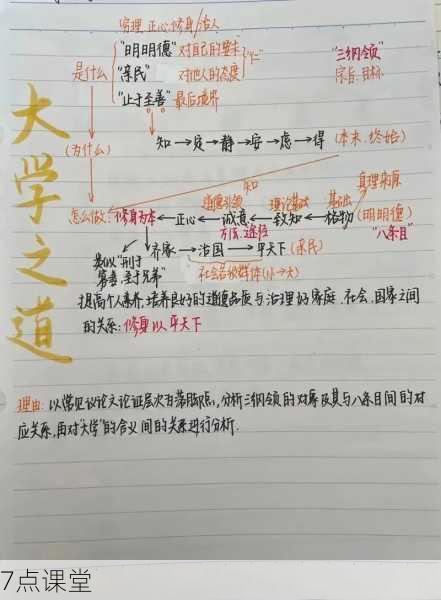 穷理 正心 修身/治人
"明明德" 对自己的要求
是什么 "亲民" 对他人的态度 "仁" "三纲领"
"止于至善" 最后境界 宗旨.目标
大学之道
知→定→静→安→虑→得 (本末.终始)
(为什么)
知
道德引领 理论基础 基础 真理来源
怎么做: 修身为本←正心←诚意←致知←格物 (明明德)
方法.途径 "八条目"
齐家→治国→平天下 (亲民)
类似"刑于
寡妻,至于兄弟" 社会各级群体(小→大)
提高个人素养,培养良好的道德品质与治理好家庭.社会.国家之间
的关系: 修身以平天下
理由: 以常见议论文论证层次为落脚点,分析三纲领的对象及其与八条目间的对
应关系,再对"大学"的含义间的关系进行分析.
7点课堂